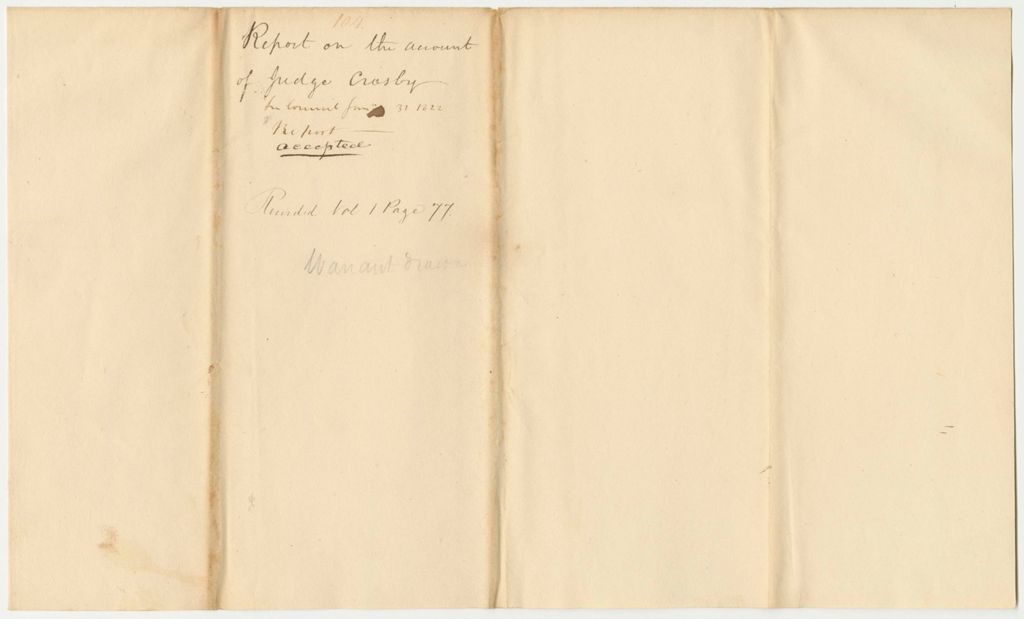 104
Report on the account
of Judge Crosby
In Council Jany 31 1822
Report
accepted
Recorded Vol 1 Page 77
Warrant drawn